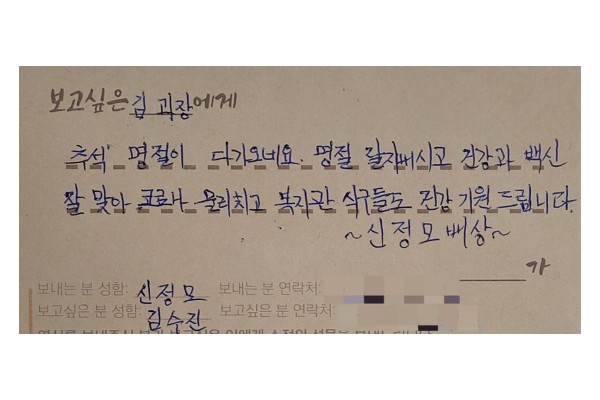 보고싶은 김 과장에게
추석 명절이 다가오네요. 명절 잘지내시고 건강과 백신
잘 맞아 코로나 물리치고 복지관 식구들도 건강 기원 드립니다.
~신정모 배상~
가
보내는 분 성함: 신정모 보내는 분 연락처:
보고싶은 분 성함: 김수진 보고싶은 분 연락처: